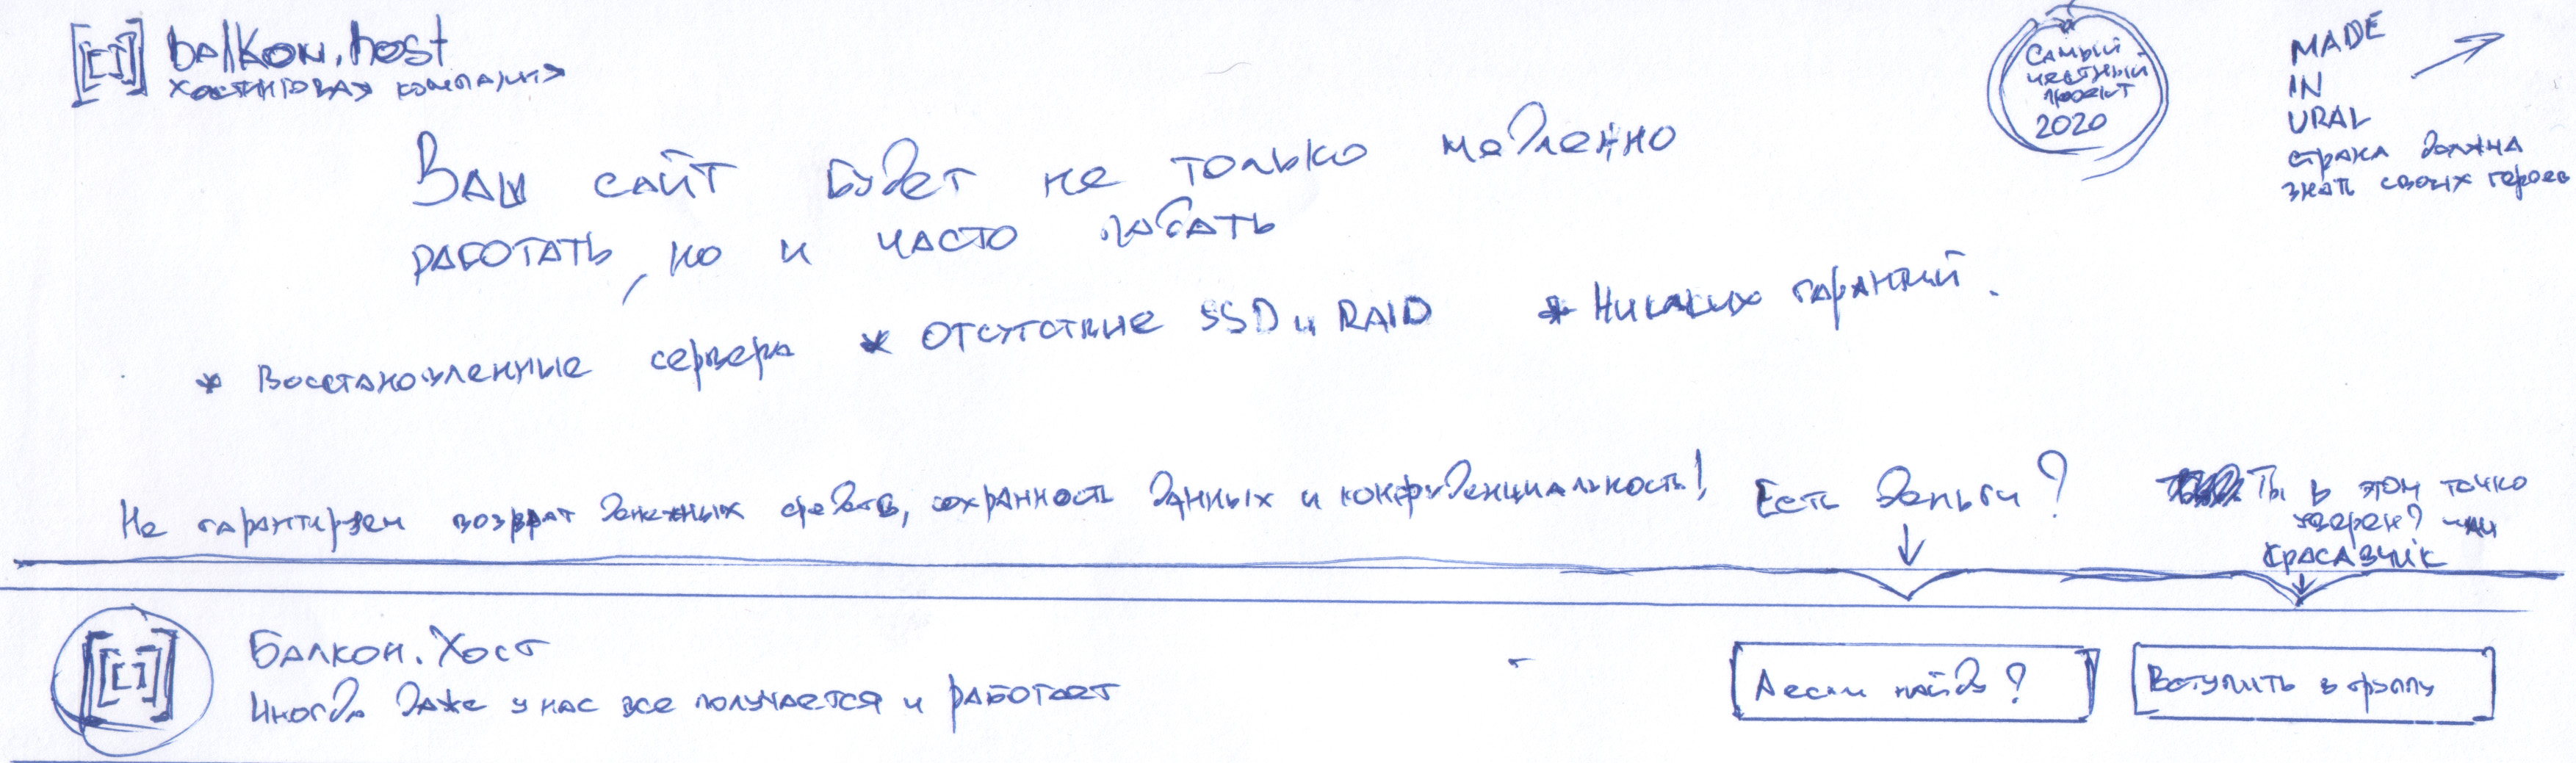 balkon.host
хостинговая компания
Самый
честный
проект
2020
MADE
IN
URAL
страна должна
знать своих героев
Ваш сайт будет не только медленно
работать, но и часто
* Восстановленные сервера * Отсутствие SSD и RAID * Никаких гарантий.
Не гарантируем возврат денежных средств, сохранность данных и конфиденциальность!
Есть деньги?
Ты в этом точно
уверен?
красавчик
Балкон.Хост
Иногда даже у нас все получается и работает
А если найду?
Вступить в группу